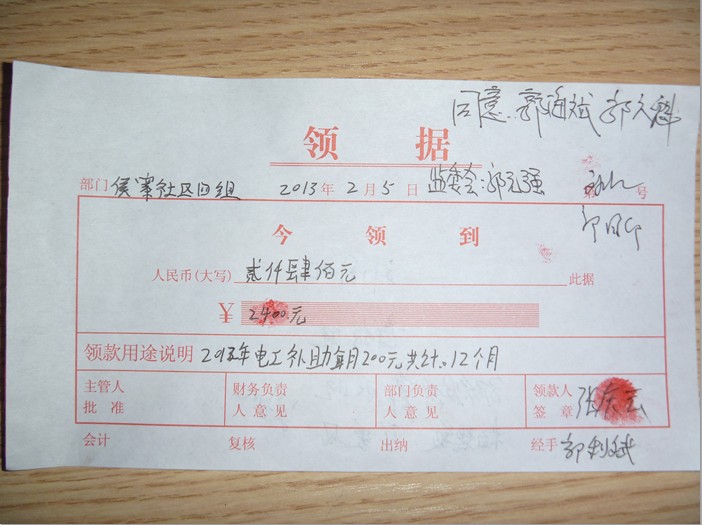 同意 郭海斌 郭文科
领 据
部门 侯寨社区四组 2013年 2月 5日 监委会:郭元强 号
今 领 到
人民币(大写) 贰仟肆佰元 此据
¥ 2400元
领款用途说明 2013年电工补助每月200元共计.12个月
主管人 批准 财务负责 人意见 部门负责 人意见 领款人 签章 张庆云
会计 复核 出纳 经手 郭利斌